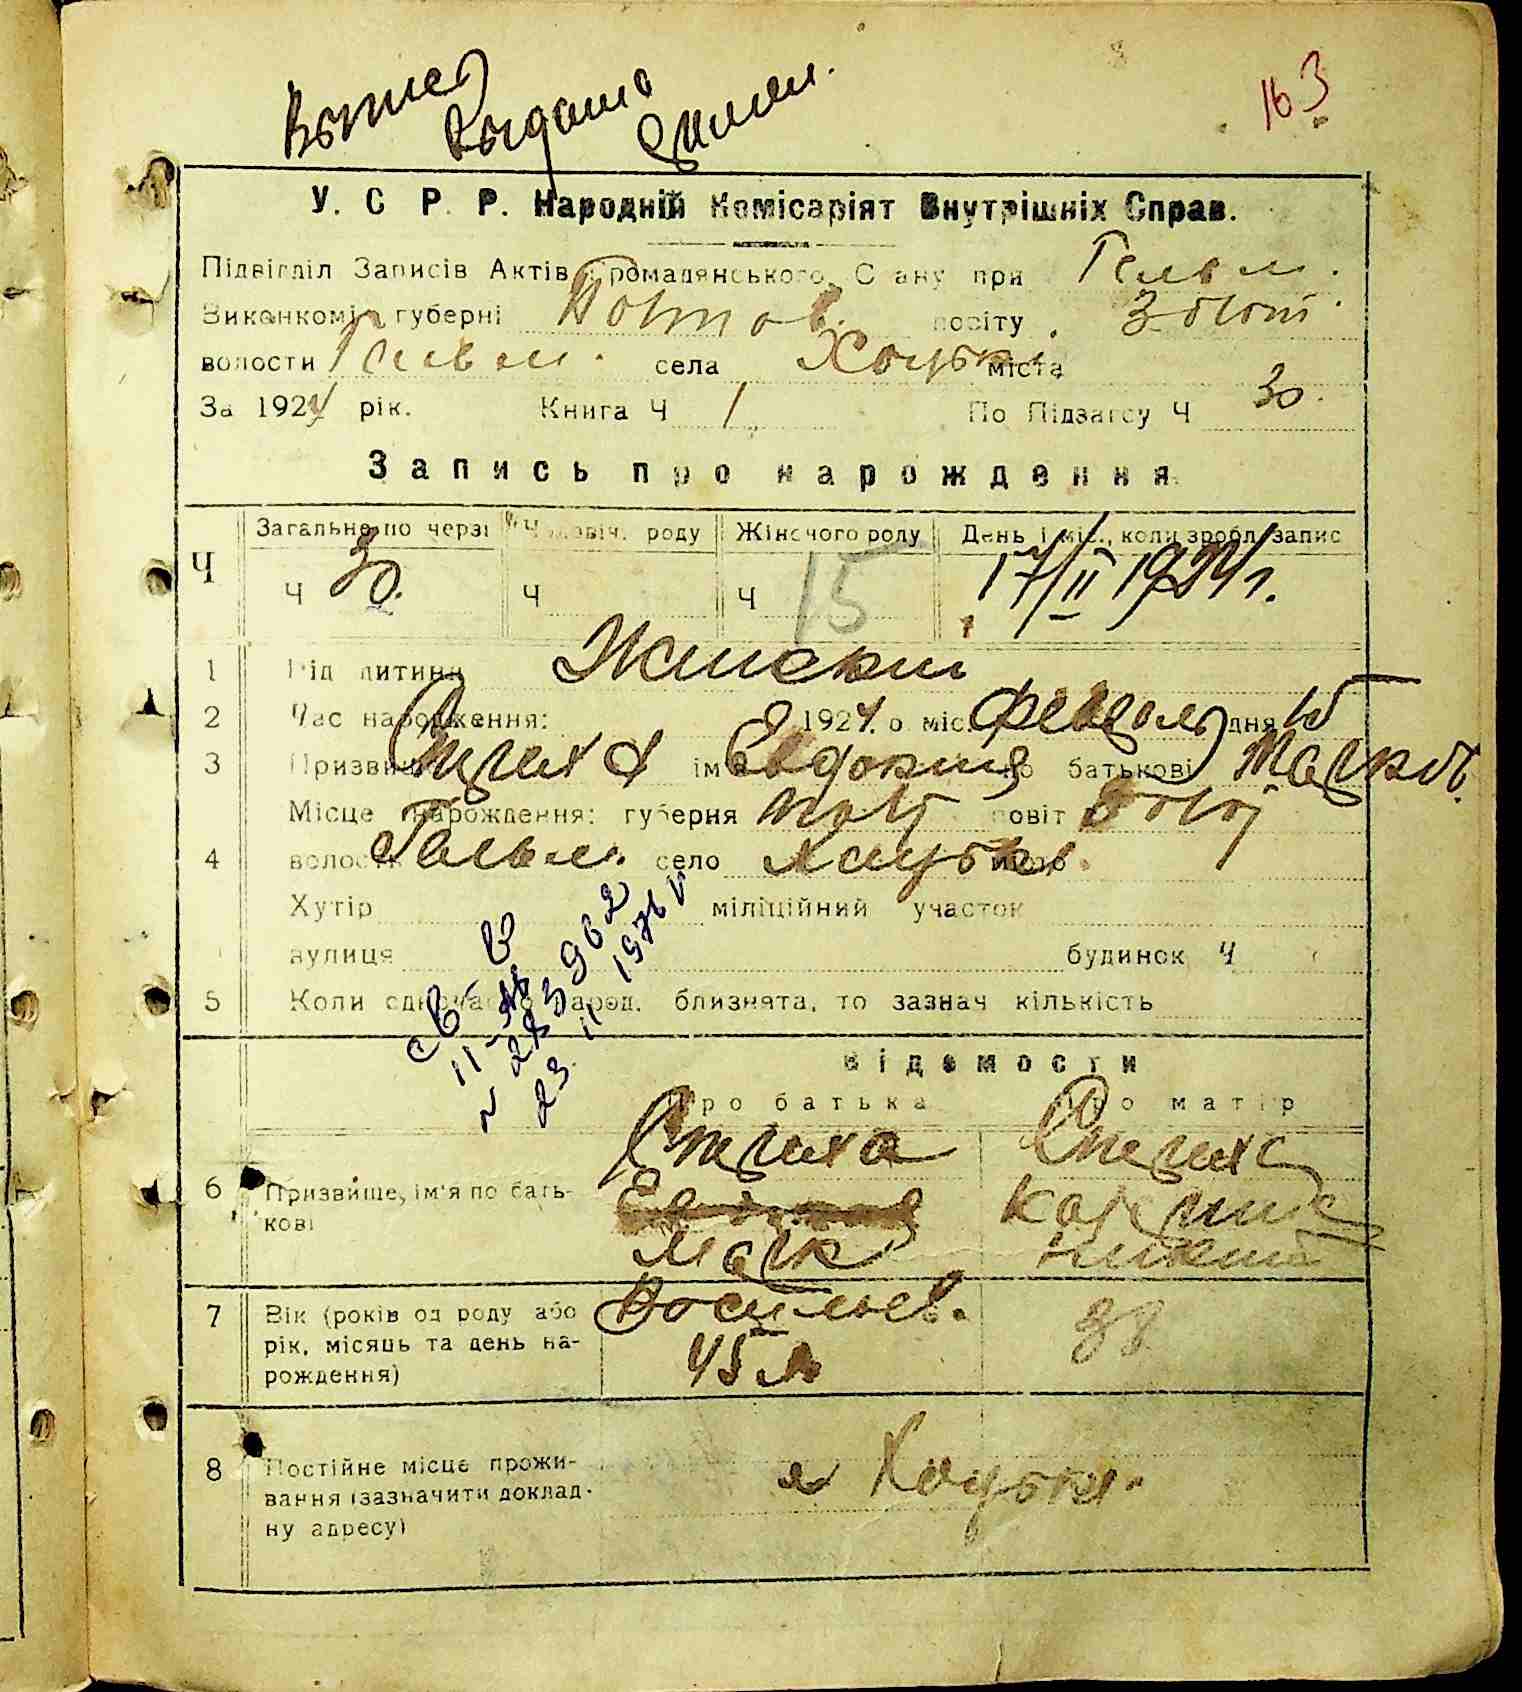 163
У. С. Р. Р. Народній Комісаріят Внутрішніх Справ.
Підвідділ Записів Актів Громадянського Стану при Гельм.
Виканкомі губерні Полтав. повіту Золот.
волости Гельм. села Хоцьки міста
За 1924 рік. Книга Ч 1 По Підзагсу Ч 30.
Запись про народження
Загально по черзі Чоловіч. роду Жіночого роду День і міс., коли зробл. запис
Ч Ч 30. Ч Ч 15 17/II 1924 г.
1 Рід дитини Женский
2 Час народження: 1924. о міс. Февраль дня 15
3 Призвище ім'я Евдокия по батькові Марков.
Місце народження: губерня Полт повіт Золот
4 волость Гельм. село Хоцьки місто
Хутір міліційний участок
вулиця будинок Ч
5 Коли одночасно народ. близнята, то зазнач кількість
св-во
23 11 1976
Відомости
Про батька Про матір
6 Призвище, ім'я по бать-
кові
Марк
7 Вік (років од роду або Васильев.
рік, місяць та день на- 45 л 38
рождення)
8 Постійне місце прожи-
вання (зазначити доклад- Хоцьки.
ну адресу)